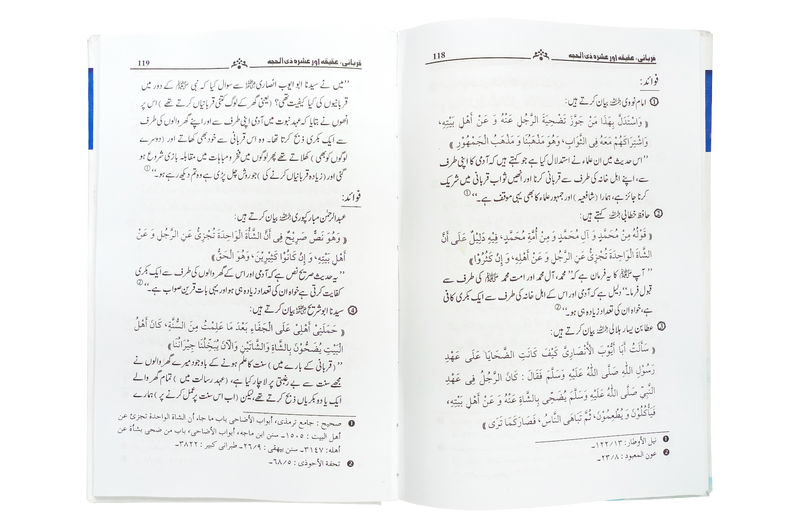 118
قربانی، عقیقہ اور عشرہ ذی الحجہ
فوائد:
① امام نووی رحمہ اللہ بیان کرتے ہیں:
﴿ وَاسْتُدِلَّ بِهٰذَا مَنْ جَوَّزَ تَضْحِيَةَ الرَّجُلِ عَنْهُ وَ عَنْ أَهْلِ بَيْتِهِ،
وَاشْتِرَاكَهُمْ مَعَهُ فِي الثَّوَابِ، وَهُوَ مَذْهَبُنَا وَ مَذْهَبُ الْجَمْهُورِ ﴾
’’اس حدیث میں ان علماء نے استدلال کیا ہے جو کہتے ہیں کہ آدمی کا اپنی طرف
سے، اپنے اہل خانہ کی طرف سے قربانی کرنا اور انھیں ثواب قربانی میں شریک
کرنا جائز ہے، ہمارا (شافعیہ) اور جمہور علماء کا بھی یہی موقف ہے۔‘‘①
② حافظ خطابی رحمہ اللہ کہتے ہیں:
﴿ قَوْلُهُ مِنْ مُحَمَّدٍ وَ آلِ مُحَمَّدٍ وَ مِنْ أُمَّةِ مُحَمَّدٍ، فِيهِ دَلِيْلٌ عَلَى أَنَّ
الشَّاةَ الْوَاحِدَةَ تُجْزِئُ عَنِ الرَّجُلِ وَ عَنْ أَهْلِهِ، وَ إِنْ كَثُرُوْا ﴾
’’آپ ﷺ کا یہ فرمان ہے کہ ’’محمد، آل محمد اور امت محمد ﷺ کی طرف سے
قبول فرما۔‘‘ دلیل ہے کہ آدمی اور اس کے اہل خانہ کی طرف سے ایک بکری کافی
ہے، خواہ ان کی تعداد زیادہ ہو۔‘‘②
③ عطا بن یسار ہلالی رحمہ اللہ بیان کرتے ہیں:
﴿ سَأَلْتُ أَبَا أَيُّوْبَ الْأَنْصَارِيَّ كَيْفَ كَانَتِ الضَّحَايَا عَلَى عَهْدِ
رَسُوْلِ اللّٰهِ صَلَّى اللّٰهُ عَلَيْهِ وَسَلَّمَ فَقَالَ : كَانَ الرَّجُلُ فِيْ عَهْدِ
النَّبِيِّ صَلَّى اللّٰهُ عَلَيْهِ وَسَلَّمَ يُضَحِّي بِالشَّاةِ عَنْهُ وَ عَنْ أَهْلِ بَيْتِهِ،
فَيَأْكُلُوْنَ وَ يُطْعِمُوْنَ، ثُمَّ تَبَاهَى النَّاسُ، فَصَارَ كَمَا تَرَى ﴾
① نیل الأوطار: ١٣/ ١٤٢۔
② عون المعبود : ٨/ ٢٣۔
119
قربانی، عقیقہ اور عشرہ ذی الحجہ
’’میں نے سیدنا ابو ایوب انصاری رضی اللہ عنہ سے سوال کیا کہ نبی ﷺ کے دور میں
قربانیوں کی کیا کیفیت تھی؟ (یعنی گھر کے لوگ کتنی قربانیاں کرتے تھے) اس پر
انھوں نے بتایا کہ عہد نبوت میں آدمی اپنی طرف سے اور اپنے گھر والوں کی طرف
سے ایک بکری ذبح کرتا تھا۔ وہ اس قربانی سے خود بھی کھاتے اور (دوسرے
لوگوں کو بھی) کھلاتے تھے پھر لوگوں میں فخر و مباہات میں مقابلہ بازی شروع ہو
گئی اور (زیادہ قربانیاں کرنے کی) جو روش چل پڑی ہے وہ تم دیکھ رہے ہو۔①
فوائد:
عبدالرحمٰن مبارکپوری رحمہ اللہ بیان کرتے ہیں:
﴿ وَهُوَ نَصٌّ صَرِيْحٌ فِي أَنَّ الشَّاةَ الْوَاحِدَةَ تُجْزِئُ عَنِ الرَّجُلِ وَ عَنْ
أَهْلِ بَيْتِهِ، وَ إِنْ كَانُوْا كَثِيْرِيْنَ، وَهُوَ الْحَقُّ ﴾
’’یہ حدیث صریح نص ہے کہ آدمی اور اس کے گھر والوں کی طرف سے ایک بکری
کفایت کرتی ہے خواہ ان کی تعداد زیادہ ہی ہو اور یہی بات قرین صواب ہے۔‘‘②
④ سیدنا ابو سریحہ رضی اللہ عنہ بیان کرتے ہیں:
﴿ حَمَلَنِيْ أَهْلِيْ عَلَى الْجَفَاءِ بَعْدَ مَا عَلِمْتُ مِنَ السُّنَّةِ، كَانَ أَهْلُ
الْبَيْتِ يُضَحُّوْنَ بِالشَّاةِ وَالشَّاتَيْنِ وَالْآنَ يُبَخِّلُنَا جِيْرَانُنَا ﴾
’’(قربانی کے بارے میں) سنت کا علم ہونے کے باوجود میرے گھر والوں نے
مجھے سنت سے بے رغبتی پر لا چار کیا ہے، (عہد رسالت میں) تمام گھر والے
ایک یا دو بکریاں ذبح کرتے تھے، لیکن (اب اس سنت پر عمل کرنے پر) ہمارے
① صحیح : جامع ترمذی، أبواب الأضاحی باب ما جاء أن الشاة الواحدة تجزئ عن
أهل البیت : ١٥٠٥۔ سنن ابن ماجه، أبواب الأضاحی، باب من ضحی بشاة عن
أهله: ٣١٤٧۔ سنن بیهقی : ٩/ ٢٦۔ طبرانی کبیر : ٣٨٢٢۔
② تحفة الأحوذی : ٥/ ٦٨۔